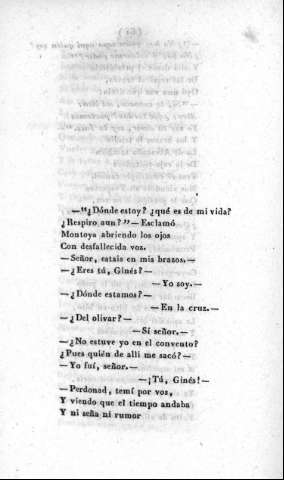 —"¿Dónde estoy? ¿qué es de mi vida?
¿Respiro aun?"—Esclamó
Montoya abriendo los ojos
Con desfallecida voz.
—Señor, estais en mis brazos.—
—¿Eres tú, Ginés?—
—Yo soy.—
—¿Dónde estamos?—
—En la cruz.—
—¿Del olivar?—
—Sí señor.—
—¿No estuve yo en el convento?
¿Pues quién de allí me sacó?—
—Yo fuí, señor.—
—¡Tú, Ginés!—
—Perdonad, temí por vos,
Y viendo que el tiempo andaba
Y ni seña ni rumor